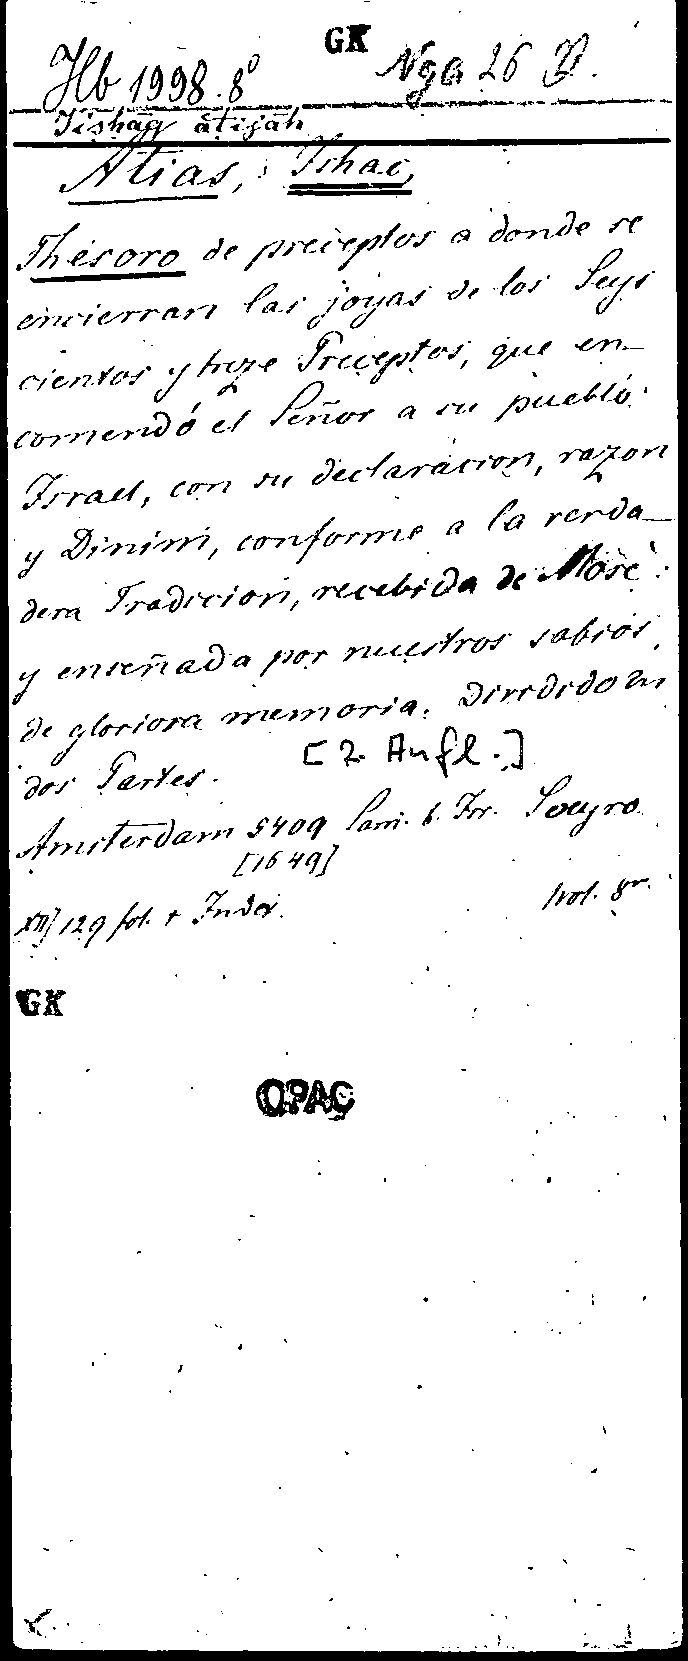 GK
Hb 1998. 8°
Nga 26
Jishāq atijāh
Atias, Ishac,
Thesoro de preceptos a donde se
encierran las joyas de los Seys
cientos y treze Preceptos, que en-
comendó el Señor a su pueblo
Israel, con su declaracion, razon
y Dinim, conforme a la verda-
dera Tradicion, recebida de Mosé:
y enseñada por nuestros sabios
de gloriosa memoria. Divedido en
dos Partes. [2. Aufl.]
Amsterdam 5409 Sam. b. Isr. Soeyro
[1649]
129 fol. + Index. 8°.
GK
OPAC